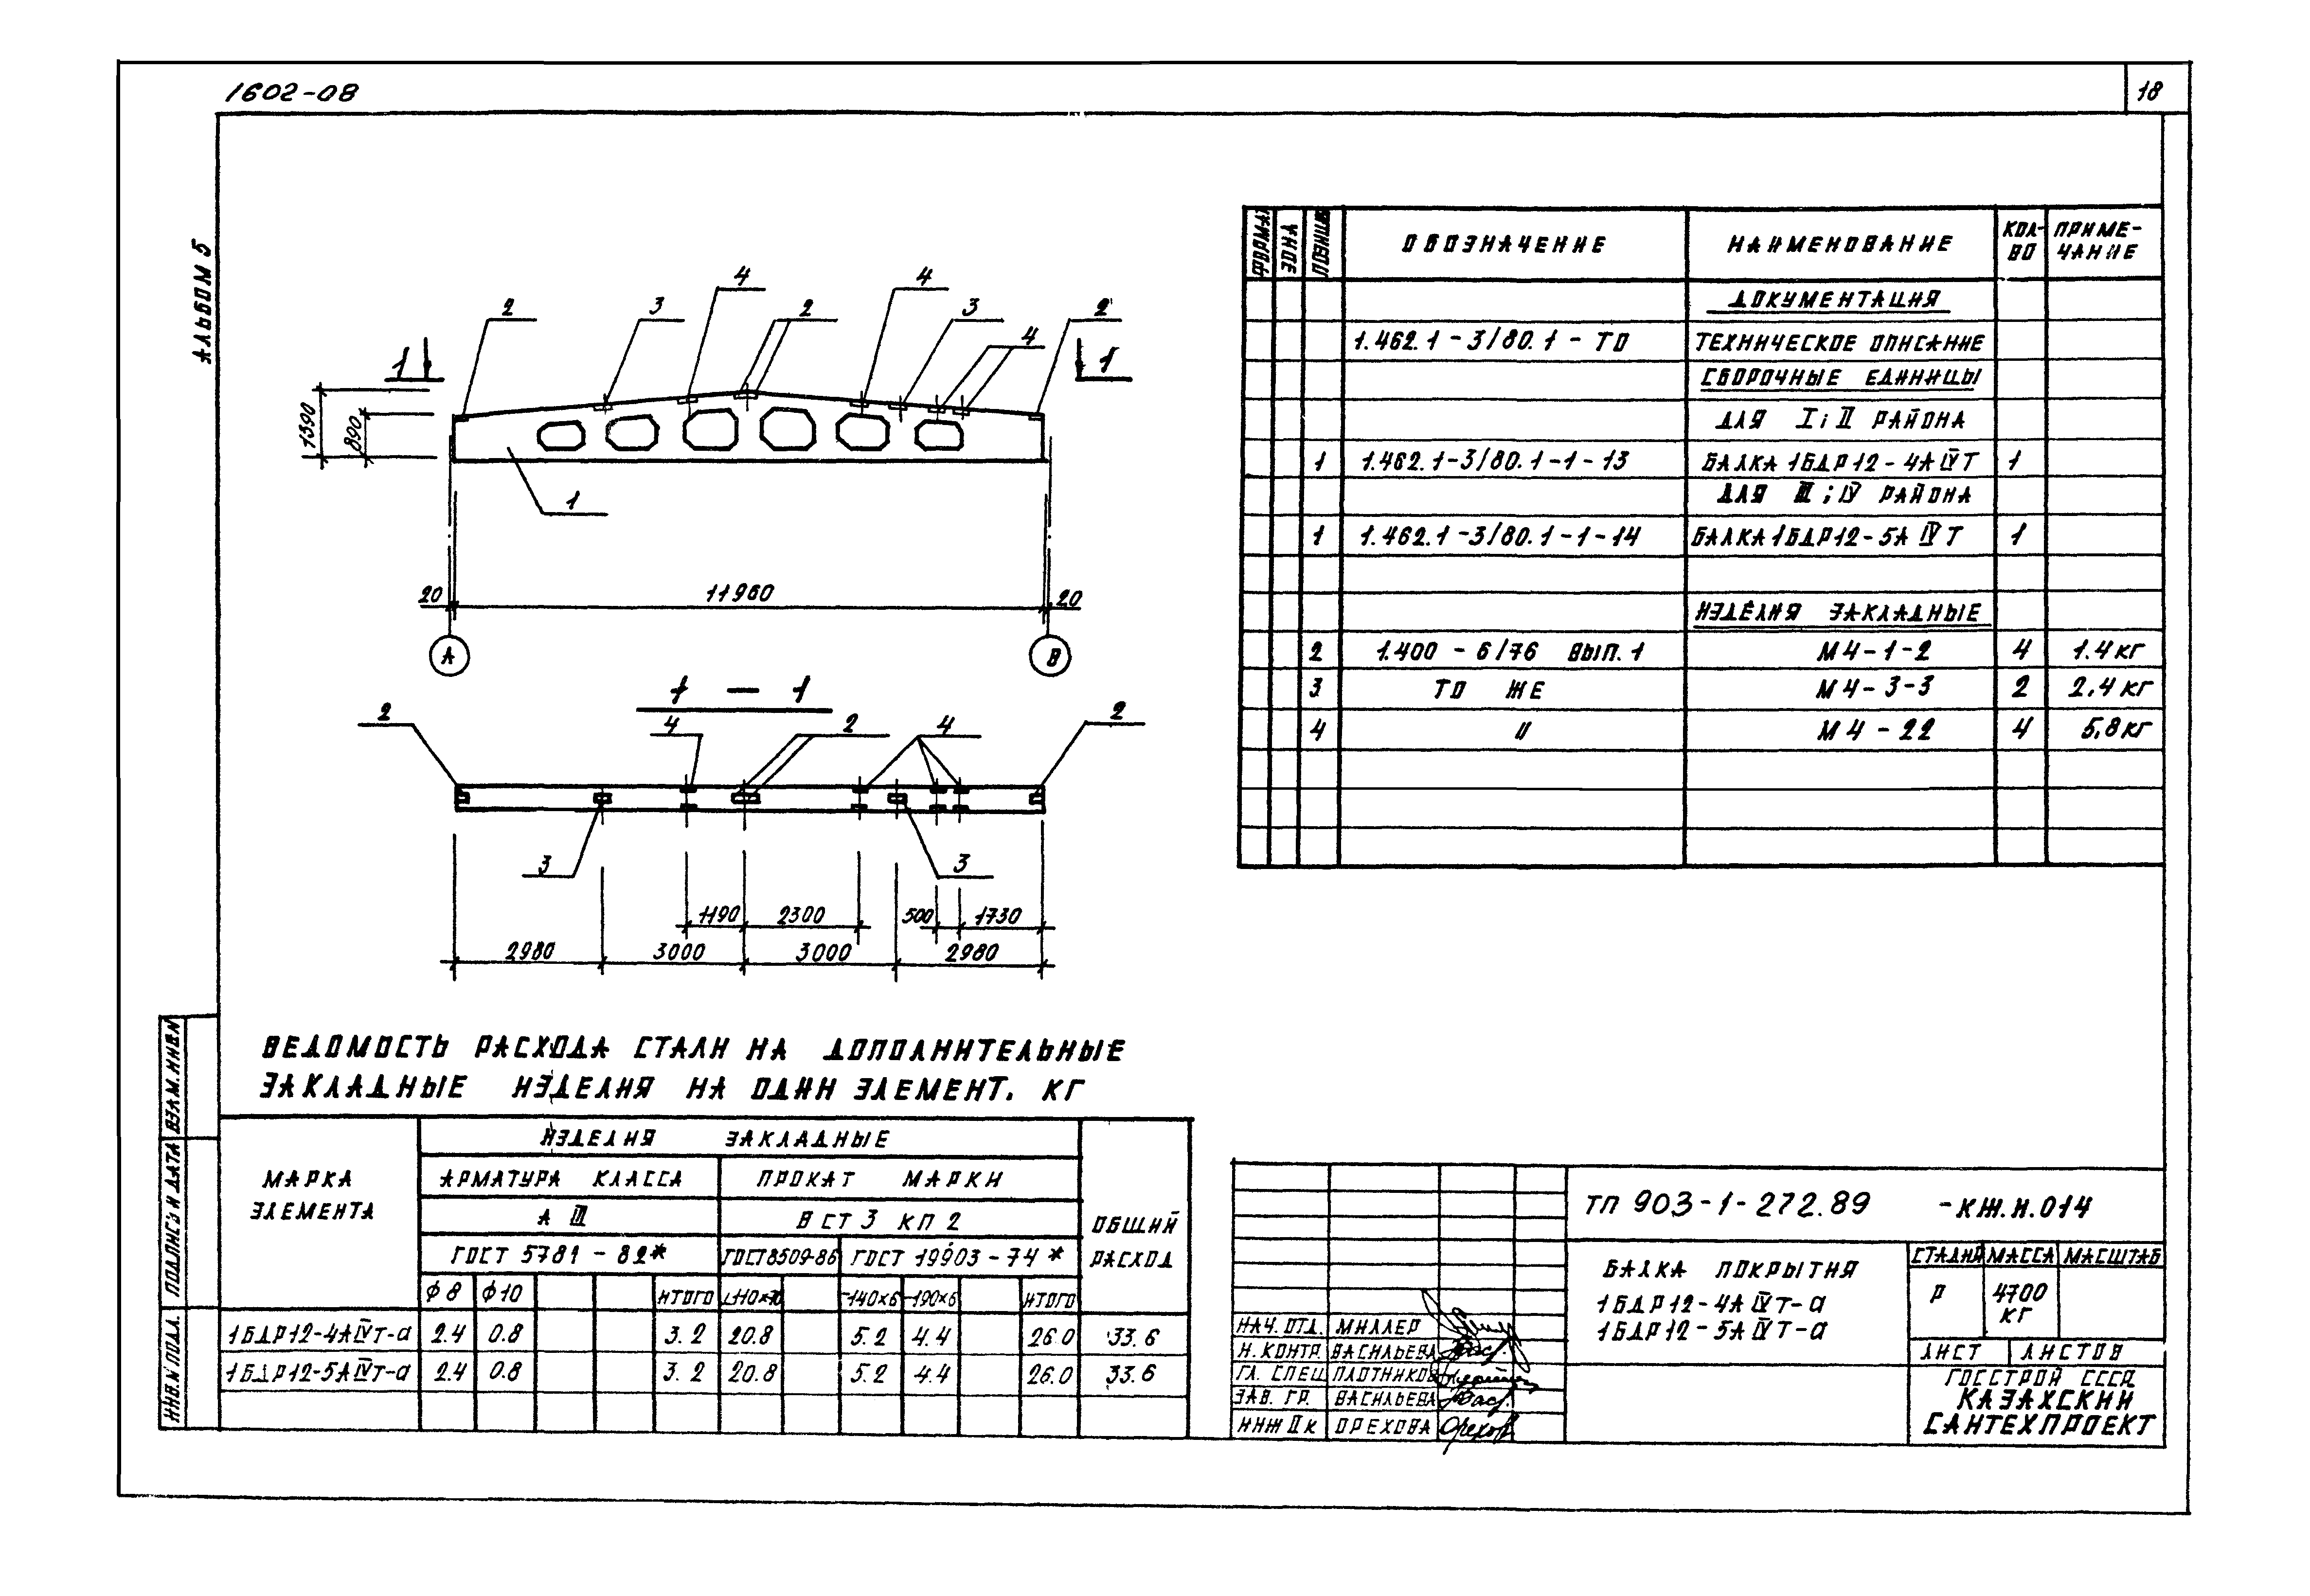 1602-08
18
АЛЬБОМ 5
2
3
4
2
4
3
4
2
1
1
1390
890
1
20
11960
20
А
В
1 — 1
2
4
2
4
2
3
3
1190
2300
500
1730
2980
3000
3000
2980
ФОРМАТ ЗОНА ПОЗИЦИЯ ОБОЗНАЧЕНИЕ НАИМЕНОВАНИЕ КОЛ-ВО ПРИМЕ-ЧАНИЕ
ДОКУМЕНТАЦИЯ
1.462.1-3/80.1-ТО ТЕХНИЧЕСКОЕ ОПИСАНИЕ
СБОРОЧНЫЕ ЕДИНИЦЫ
ДЛЯ I; II РАЙОНА
1 1.462.1-3/80.1-1-13 БАЛКА 1БДР12-4АIVТ 1
ДЛЯ III; IV РАЙОНА
1 1.462.1-3/80.1-1-14 БАЛКА 1БДР12-5АIVТ 1
ИЗДЕЛИЯ ЗАКЛАДНЫЕ
2 1.400-6/76 ВЫП.1 М4-1-2 4 1.4кг
3 ТО ЖЕ М4-3-3 2 2,4кг
4 " М4-22 4 5,8кг
ВЕДОМОСТЬ РАСХОДА СТАЛИ НА ДОПОЛНИТЕЛЬНЫЕ
ЗАКЛАДНЫЕ ИЗДЕЛИЯ НА ОДИН ЭЛЕМЕНТ. КГ
МАРКА ЭЛЕМЕНТА
ИЗДЕЛИЯ ЗАКЛАДНЫЕ
ОБЩИЙ РАСХОД
АРМАТУРА КЛАССА ПРОКАТ МАРКИ
А III ВСТ3 КП2
ГОСТ 5781-82* ГОСТ8509-86 ГОСТ 19903-74*
ф8 ф10 ИТОГО ∟110×70 -140×6 -190×6 ИТОГО
1БДР12-4АIVТ-а 2.4 0.8 3.2 20.8 5.2 4.4 26.0 33.6
1БДР12-5АIVТ-а 2.4 0.8 3.2 20.8 5.2 4.4 26.0 33.6
ИНВ.№ ПОДЛ. ПОДПИСЬ И ДАТА ВЗАМ.ИНВ.№
НАЧ. ОТД. МИЛЛЕР
Н. КОНТР. ВАСИЛЬЕВА
ГЛ. СПЕЦ ПЛОТНИКОВ
ЗАВ. ГР. ВАСИЛЬЕВА
ИНЖ IIк ОРЕХОВА
ТП 903-1-272.89 -КЖ.И.014
БАЛКА ПОКРЫТИЯ
1БДР12-4АIVТ-а
1БДР12-5АIVТ-а
СТАДИЯ МАССА МАСШТАБ
Р 4700 КГ
ЛИСТ ЛИСТОВ
ГОССТРОЙ СССР
КАЗАХСКИЙ
САНТЕХПРОЕКТ